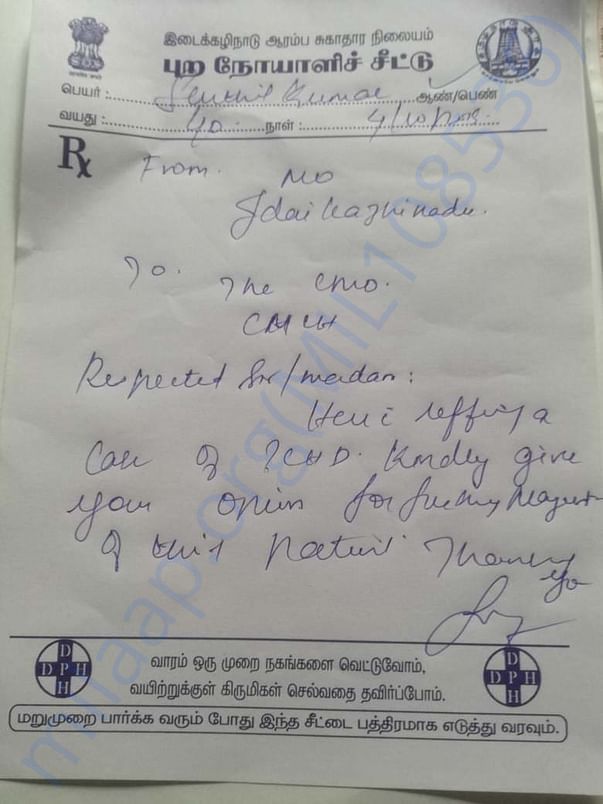 இடைக்கழிநாடு ஆரம்ப சுகாதார நிலையம்
புற நோயாளிச் சீட்டு
பெயர் : Senthil Kumar ஆண்/பெண்
வயது : 40 நாள் : 4/10/2018
Rx From. MO
Idaikazhinadu.
To. The CMO.
CMCH
Respected Sir/madam:
Here i reffing a
Case of ?CHD. Kindly give
your opinion for further
of this Patient Thank
You
D
D P H
H
வாரம் ஒரு முறை நகங்களை வெட்டுவோம்,
வயிற்றுக்குள் கிருமிகள் செல்வதை தவிர்ப்போம்.
D
D P H
H
மறுமுறை பார்க்க வரும் போது இந்த சீட்டை பத்திரமாக எடுத்து வரவும்.
milaap.org(MIL108530)